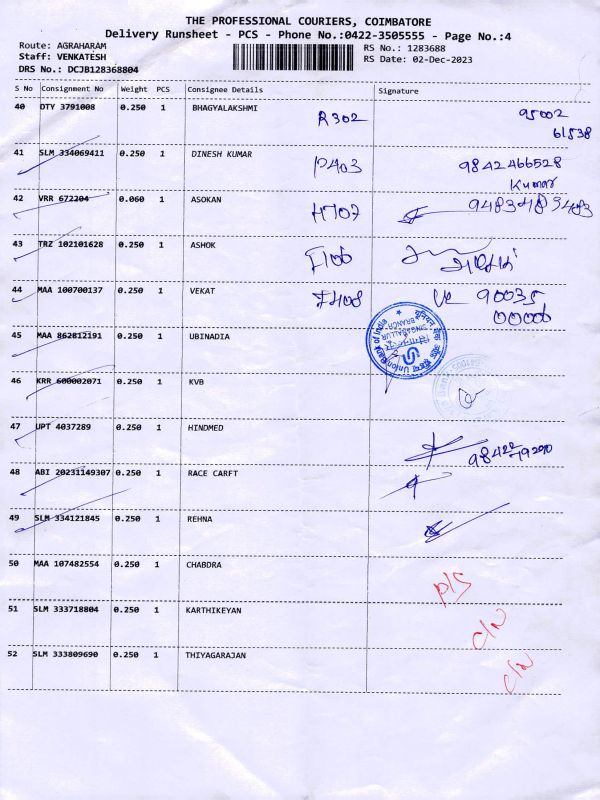 THE PROFESSIONAL COURIERS, COIMBATORE
Delivery Runsheet - PCS - Phone No.:0422-3505555 - Page No.:4
Route: AGRAHARAM
RS No.: 1283688
Staff: VENKATESH
RS Date: 02-Dec-2023
DRS No.: DCJB128368804
S No Consignment No Weight PCS Consignee Details Signature
40 DTY 3791008 0.250 1 BHAGYALAKSHMI R302 95002
61538
41 SLM 334069411 0.250 1 DINESH KUMAR P403 9842466528
Kumar
42 VRR 672204 0.060 1 ASOKAN H707
43 TRZ 102101628 0.250 1 ASHOK I106
44 MAA 100700137 0.250 1 VEKAT F408 Ve 90035
00000
45 MAA 862812191 0.250 1 UBINADIA
Union Bank of India
SINGANALLUR
BRANCH
46 KRR 600002071 0.250 1 KVB
47 UPT 4037289 0.250 1 HINDMED
48 ABI 20231149307 0.250 1 RACE CARFT
49 SLM 334121845 0.250 1 REHNA
50 MAA 107482554 0.250 1 CHABDRA P/S
51 SLM 333718804 0.250 1 KARTHIKEYAN C/N
52 SLM 333809690 0.250 1 THIYAGARAJAN C/N